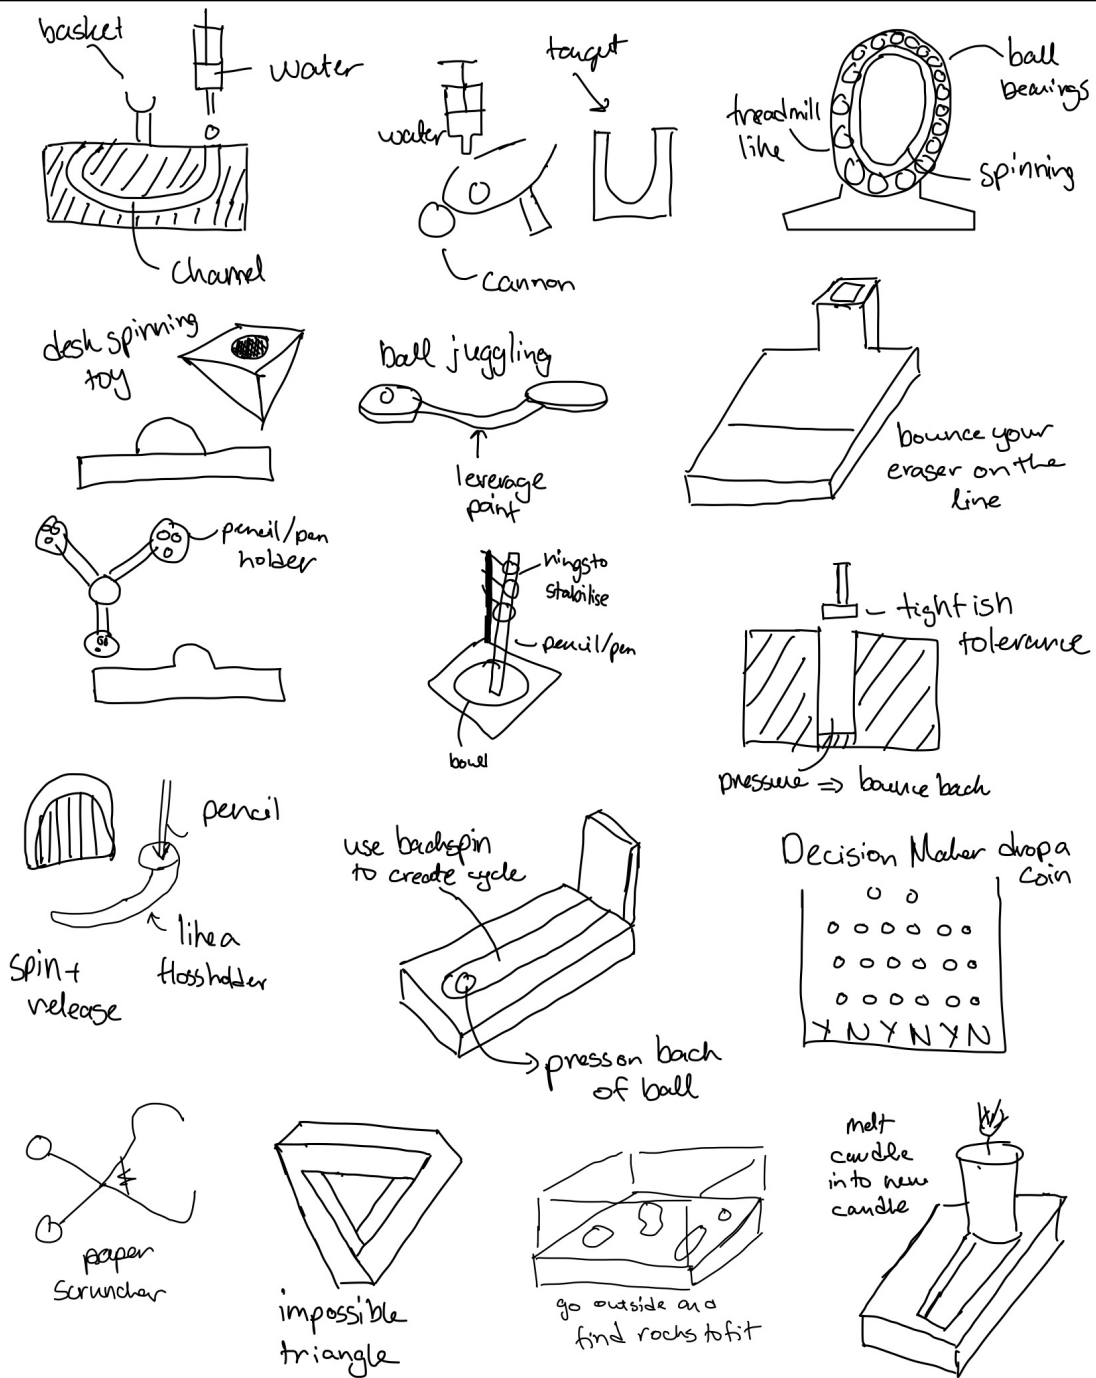 basket
water
Channel
water
target
cannon
treadmill
like
ball
bearings
spinning
desk spinning
toy
ball juggling
leverage
point
bounce your
eraser on the
line
pencil/pen
holder
rings to
stabilise
pencil/pen
bowl
tightish
tolerance
pressure ⇒ bounce back
pencil
like a
flossholder
spin +
release
use backspin
to create cycle
press on back
of ball
Decision Maker drop a
coin
Y N Y N Y N
paper
scruncher
impossible
triangle
go outside and
find rocks to fit
melt
candle
into new
candle